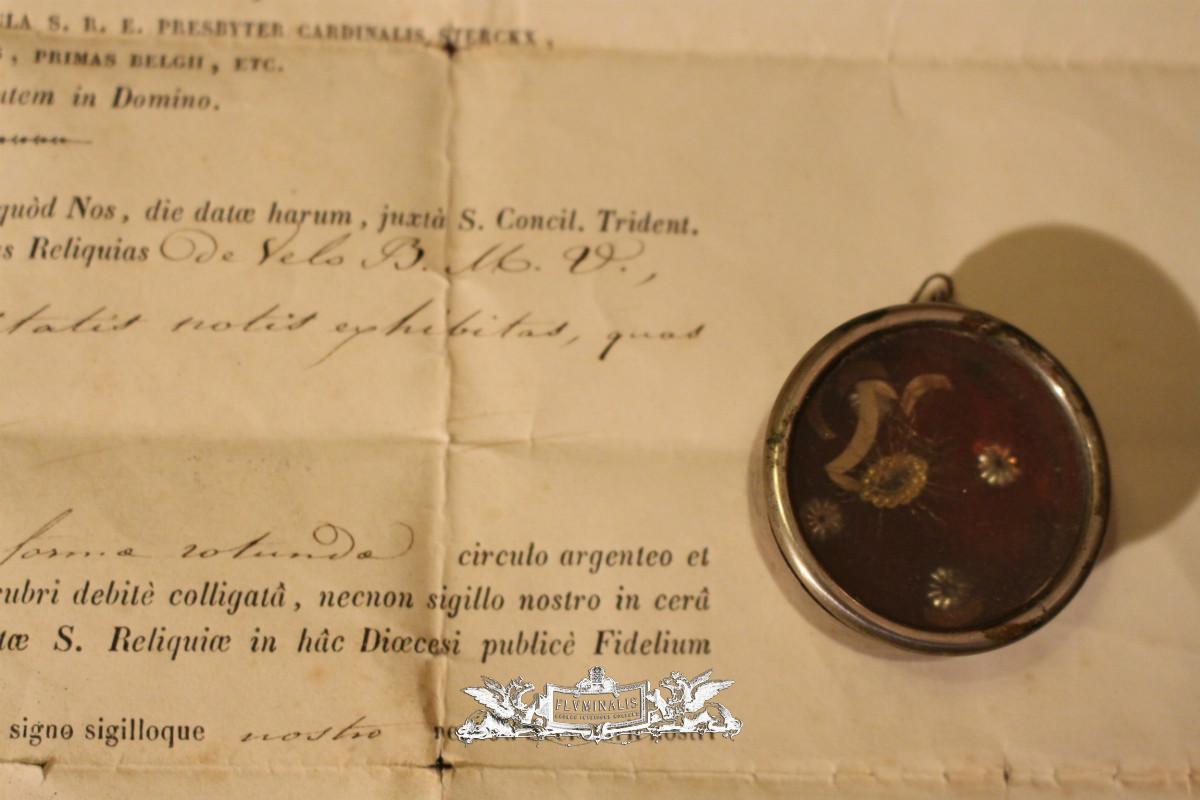 LA S. R. E. PRESBYTER CARDINALIS STERCKX,
, PRIMAS BELGII, ETC.
utem in Domino.
quòd Nos, die datæ harum, juxtà S. Concil. Trident.
s Reliquias De Velo B. M. V.,
itatis notis exhibitas, quas
formæ rotundæ circulo argenteo et
rubri debitè colligatâ, necnon sigillo nostro in cerâ
tæ S. Reliquiæ in hâc Diœcesi publicè Fidelium
signo sigilloque nostro
nostri
FLVMINALIS